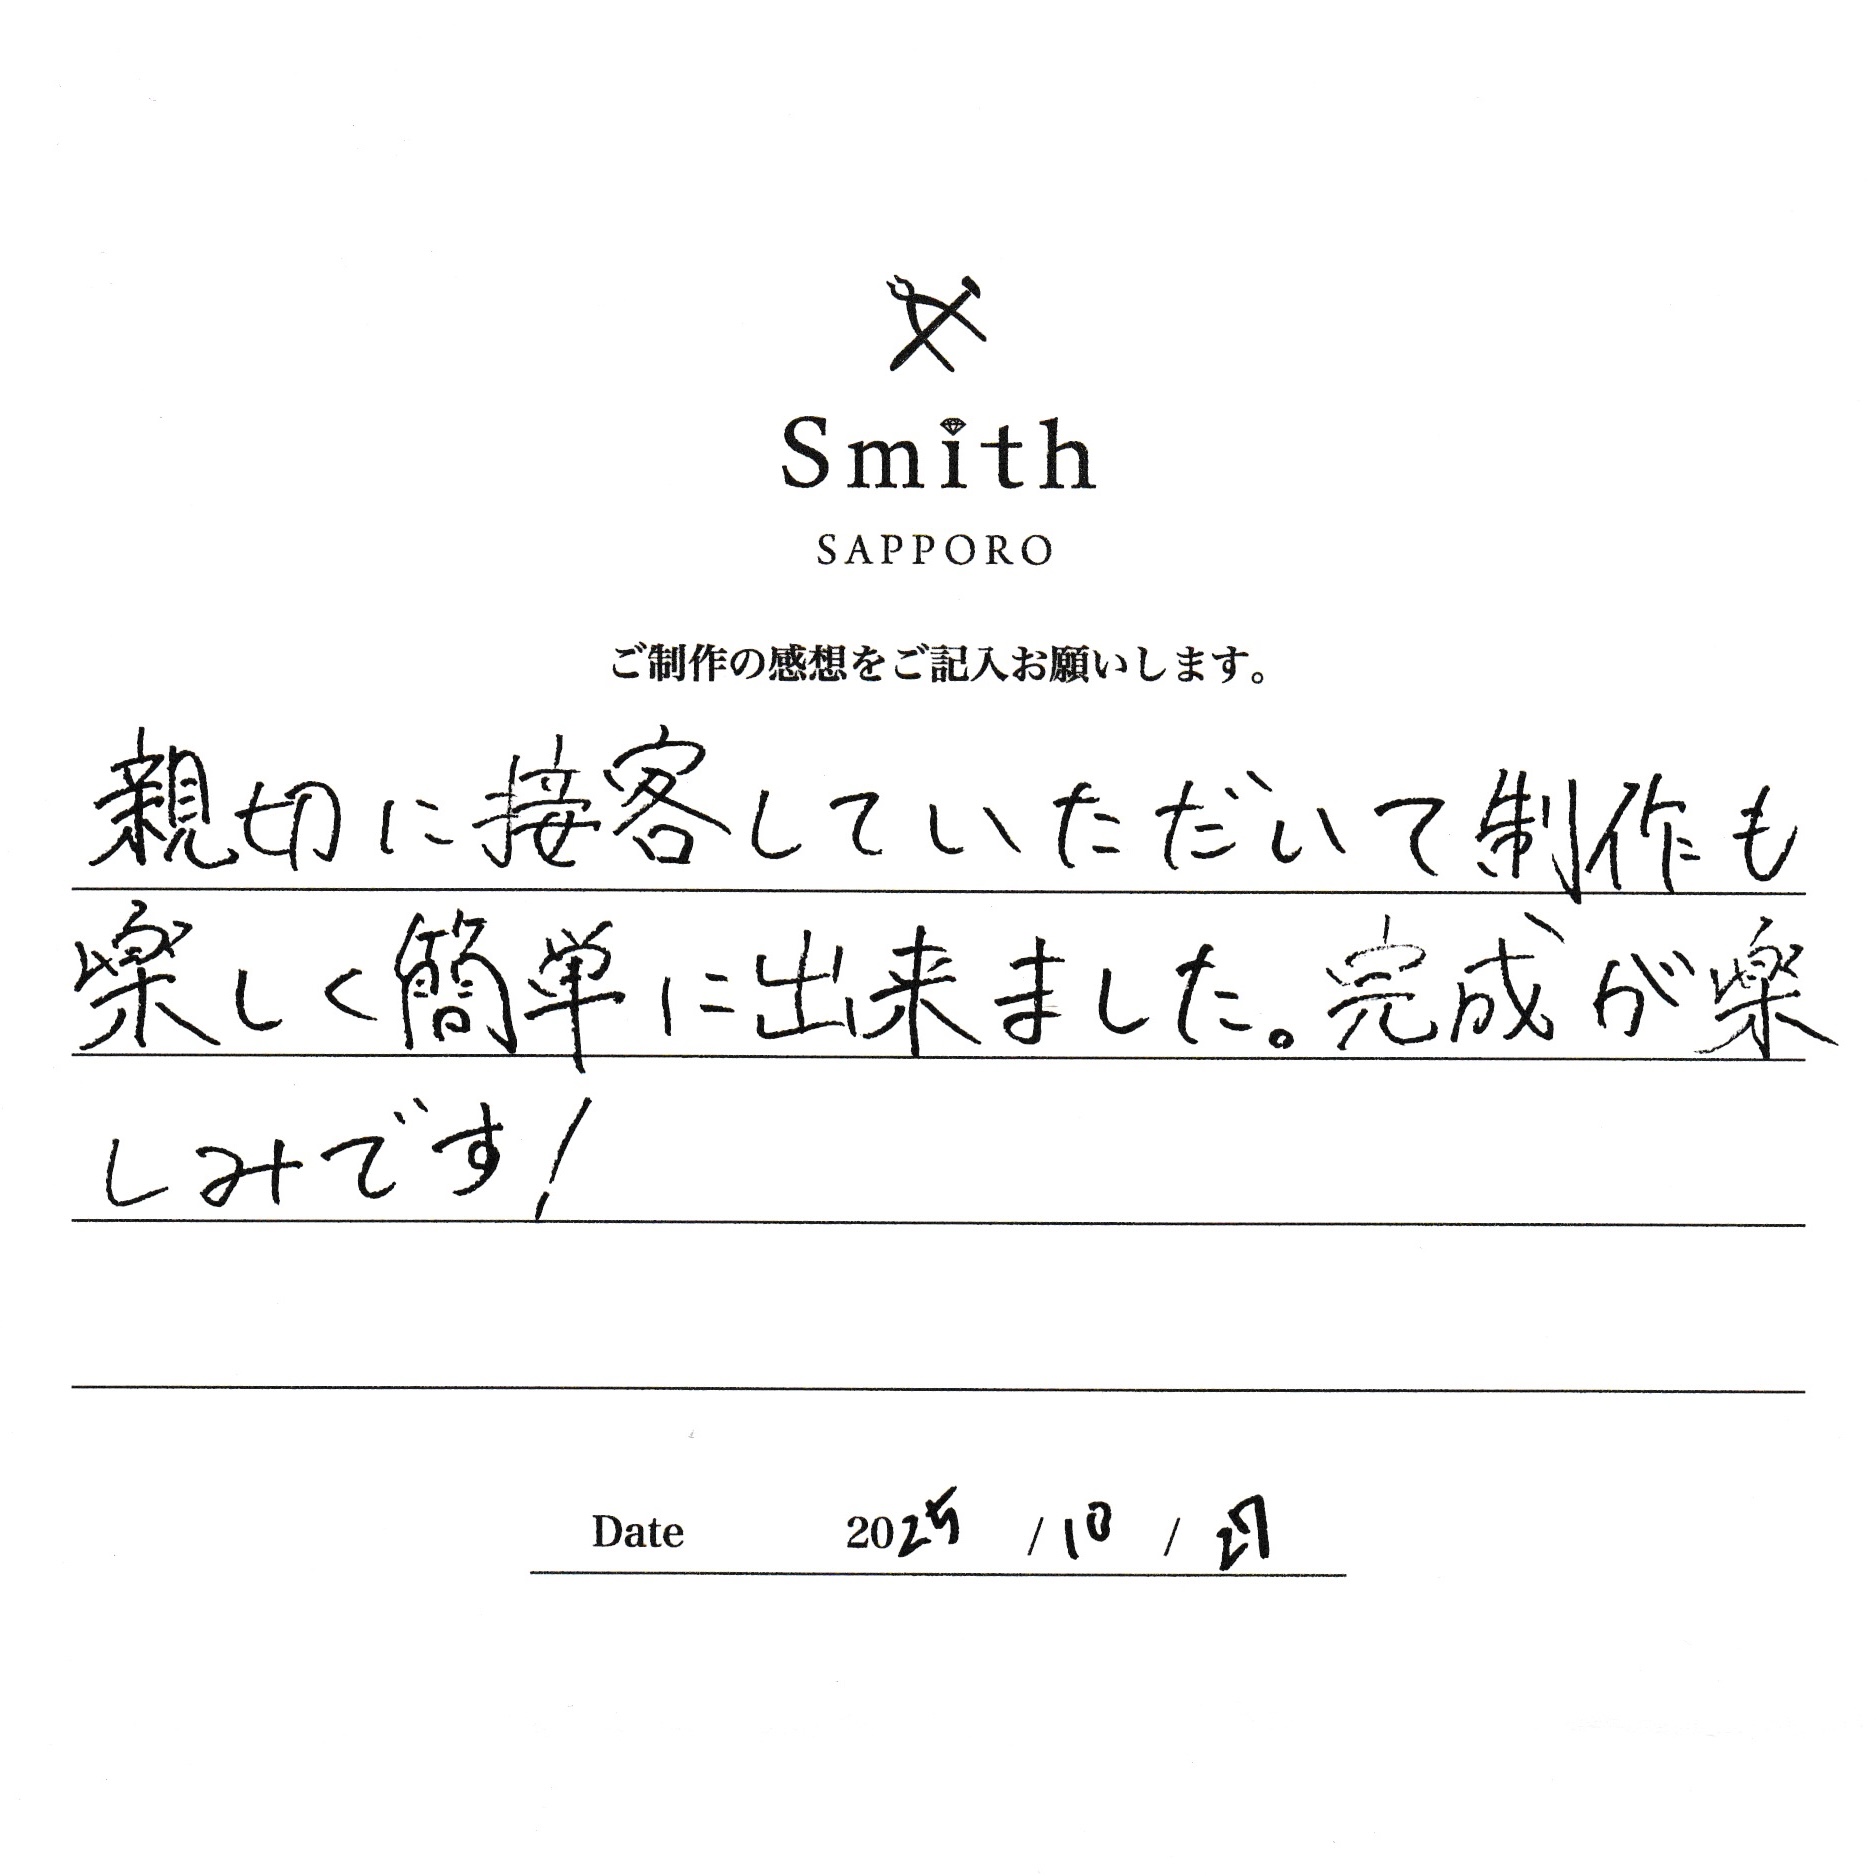 Smith
SAPPORO
ご制作の感想をご記入お願いします。
親切に接客していただいて制作も
楽しく簡単に出来ました。完成が楽
しみです!
Date 2025 / 10 / 27